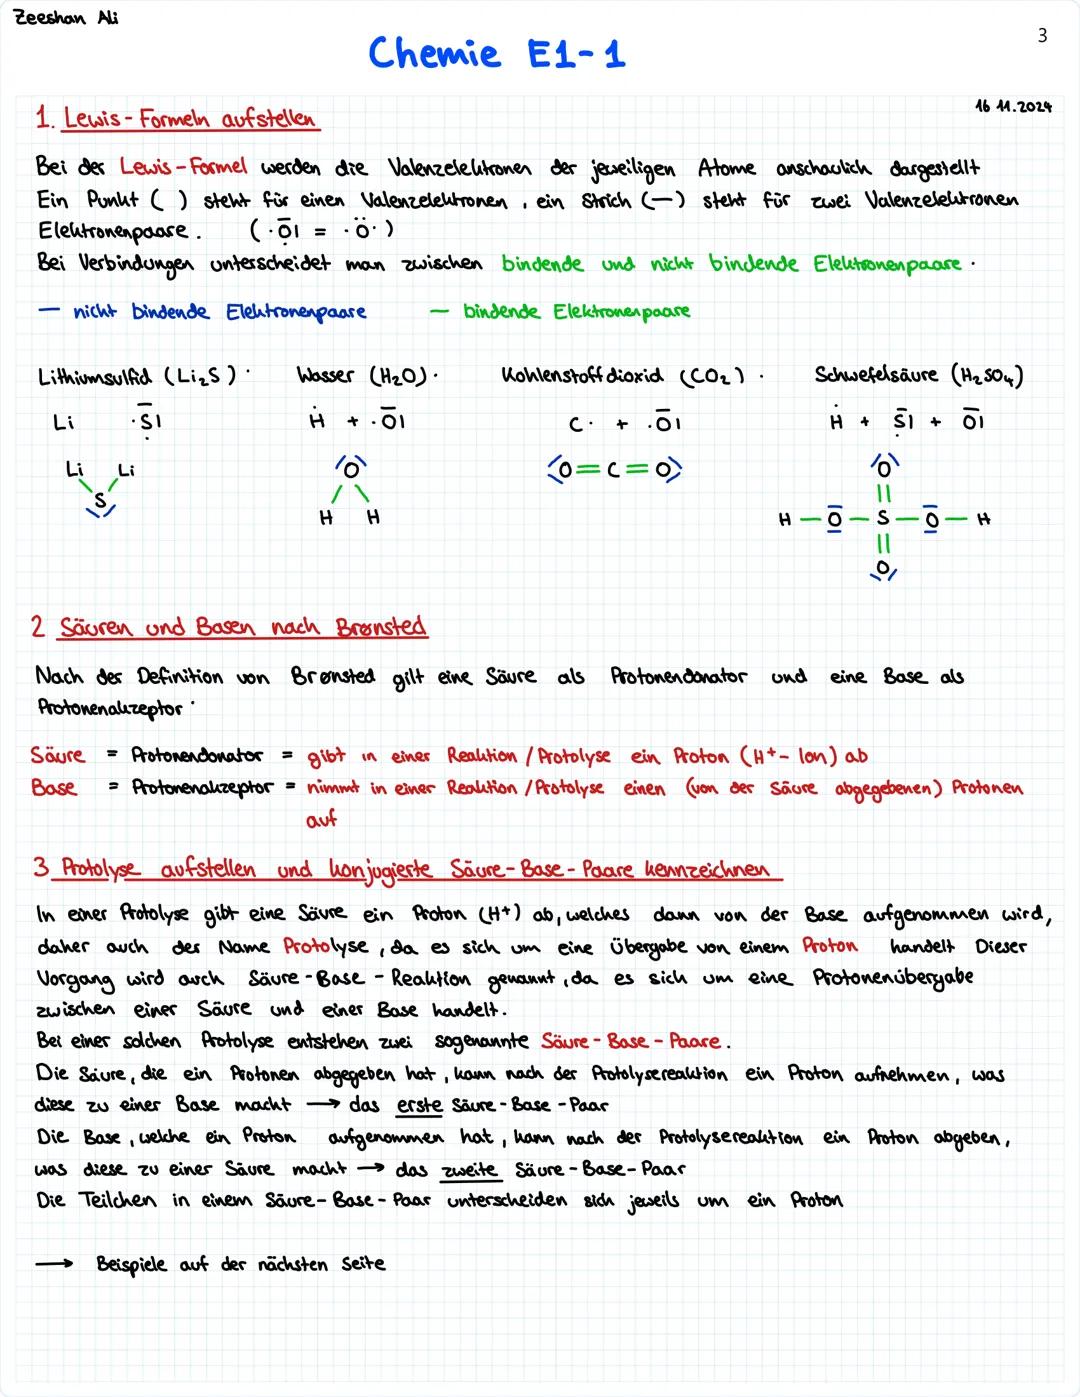 Zeeshan Ali
3
Chemie E1-1
16 11.2024
1. Lewis-Formeln aufstellen
Bei der Lewis-Formel werden die Valenzelektronen der jeweiligen Atome anschaulich dargestellt
Ein Punkt ( ) steht für einen Valenzelektronen, ein Strich (—) steht für zwei Valenzelektronen
Elektronenpaare. (·O̅| = ·Ö·)
Bei Verbindungen unterscheidet man zwischen bindende und nicht bindende Elektronenpaare.
— nicht bindende Elektronenpaare — bindende Elektronenpaare
Lithiumsulfid (Li₂S) · Wasser (H₂O) · Kohlenstoffdioxid (CO₂) · Schwefelsäure (H₂SO₄)
Li ·S̅| Ḣ + ·O̅| C· + ·O̅| Ḣ + S̅| + O̅|
Li Li O O=C=O O
S H H H—O—S—O—H
O
2 Säuren und Basen nach Brønsted
Nach der Definition von Brønsted gilt eine Säure als Protonendonator und eine Base als
Protonenakzeptor.
Säure = Protonendonator = gibt in einer Reaktion/Protolyse ein Proton (H⁺- Ion) ab
Base = Protonenakzeptor = nimmt in einer Reaktion/Protolyse einen (von der Säure abgegebenen) Protonen
auf
3 Protolyse aufstellen und konjugierte Säure-Base-Paare kennzeichnen
In einer Protolyse gibt eine Säure ein Proton (H⁺) ab, welches dann von der Base aufgenommen wird,
daher auch der Name Protolyse, da es sich um eine Übergabe von einem Proton handelt Dieser
Vorgang wird auch Säure-Base-Reaktion genannt, da es sich um eine Protonenübergabe
zwischen einer Säure und einer Base handelt.
Bei einer solchen Protolyse entstehen zwei sogenannte Säure-Base-Paare.
Die Säure, die ein Protonen abgegeben hat, kann nach der Protolysereaktion ein Proton aufnehmen, was
diese zu einer Base macht → das erste Säure-Base-Paar
Die Base, welche ein Proton aufgenommen hat, kann nach der Protolysereaktion ein Proton abgeben,
was diese zu einer Säure macht → das zweite Säure-Base-Paar
Die Teilchen in einem Säure-Base-Paar unterscheiden sich jeweils um ein Proton
→ Beispiele auf der nächsten Seite